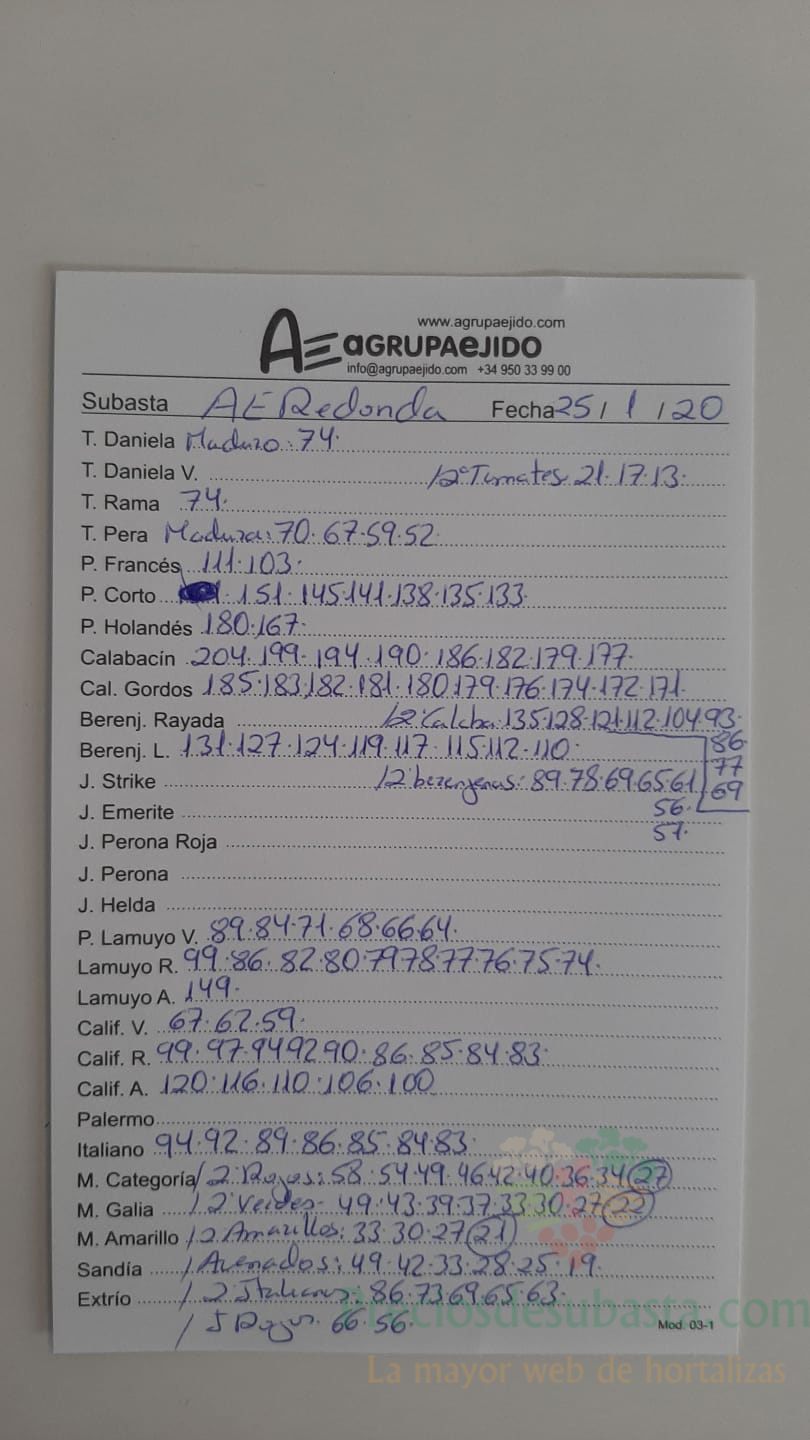 www.agrupaejido.com
AE AGRUPAEJIDO
info@agrupaejido.com +34 950 33 99 00
Subasta AE Redonda Fecha 25/1/20
T. Daniela Maduro: 74.
T. Daniela V. /2ª Tomates 21.17.13.
T. Rama 74.
T. Pera Maduras: 70.67.59.52
P. Francés 111.103.
P. Corto 151.145.141.138.135.133.
P. Holandés 180.167.
Calabacín 204.199.194.190.186.182.179.177.
Cal. Gordos 185.183.182.181.180.179.176.174.172.171.
Berenj. Rayada /2ª Calaba 135.128.121.112.104.93.
Berenj. L. 131.127.124.119.117.115.112.110. 86
77
J. Strike /2 berenjenas: 89.78.69.65.61 69
J. Emerite 56.
57.
J. Perona Roja
J. Perona
J. Helda
P. Lamuyo V. 89.84.71.68.66.64.
Lamuyo R. 99.86.82.80.79.78.77.76.75.74.
Lamuyo A. 149.
Calif. V. 67.62.59.
Calif. R. 99.97.94.92.90.86.85.84.83.
Calif. A. 120.116.110.106.100
Palermo
Italiano 94.92.89.86.85.84.83.
M. Categoría /2 Rojos: 58.54.49.46.42.40.36.34 27
M. Galia /2 Verdes- 49.43.39.37.33.30.27 22
M. Amarillo /2 Amarillos: 33.30.27 21
Sandía /Asenados: 49.42.33.28.25.19.
Extrío /2 Italianos: 86.73.69.65.63.
/ 66.56.
Mod. 03-1
preciosdesubasta.com
La mayor web de hortalizas